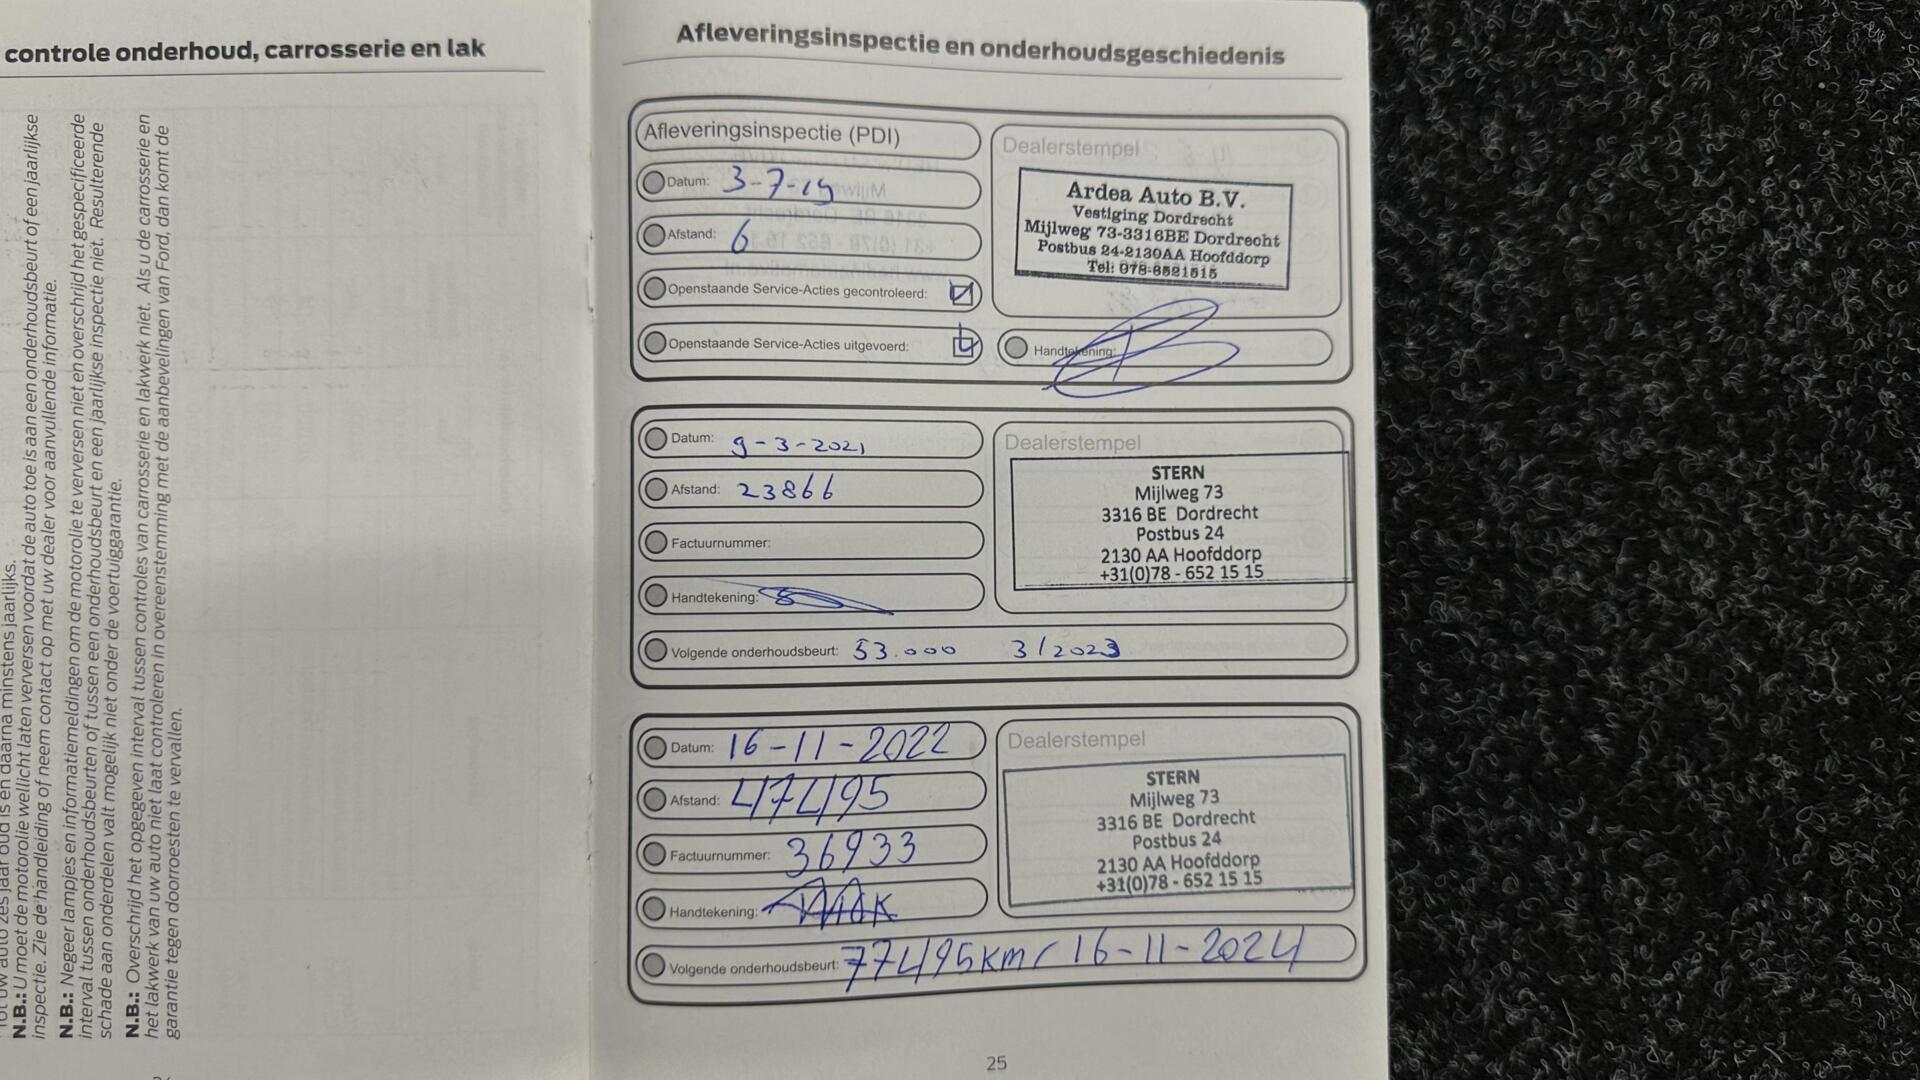 controle onderhoud, carrosserie en lak
en daarna minstens jaarlijks.
N.B.: U moet de motorolie wellicht laten verversen voordat de auto toe is aan een onderhoudsbeurt of een jaarlijkse
inspectie. Zie de handleiding of neem contact op met uw dealer voor aanvullende informatie.
N.B.: Negeer lampjes en informatiemeldingen om de motorolie te verversen niet en overschrijd het gespecificeerde
interval tussen onderhoudsbeurten of tussen een onderhoudsbeurt en een jaarlijkse inspectie niet. Resulterende
schade aan onderdelen valt mogelijk niet onder de voertuiggarantie.
N.B.: Overschrijd het opgegeven interval tussen controles van carrosserie en lakwerk niet. Als u de carrosserie en
het lakwerk van uw auto niet laat controleren in overeenstemming met de aanbevelingen van Ford, dan komt de
garantie tegen doorroesten te vervallen.
Afleveringsinspectie en onderhoudsgeschiedenis
Afleveringsinspectie (PDI)
Datum: 3-7-19
Afstand: 6
Openstaande Service-Acties gecontroleerd:
Openstaande Service-Acties uitgevoerd:
Dealerstempel
Ardea Auto B.V.
Vestiging Dordrecht
Mijlweg 73-3316BE Dordrecht
Postbus 24-2130AA Hoofddorp
Tel: 078-6521515
Handtekening:
Datum: 9-3-2021
Afstand: 23866
Factuurnummer:
Handtekening:
Dealerstempel
STERN
Mijlweg 73
3316 BE Dordrecht
Postbus 24
2130 AA Hoofddorp
+31(0)78 - 652 15 15
Volgende onderhoudsbeurt: 53.000 3/2023
Datum: 16-11-2022
Afstand: 47495
Factuurnummer: 36933
Handtekening:
Dealerstempel
STERN
Mijlweg 73
3316 BE Dordrecht
Postbus 24
2130 AA Hoofddorp
+31(0)78 - 652 15 15
Volgende onderhoudsbeurt: 77495km / 16-11-2024
25